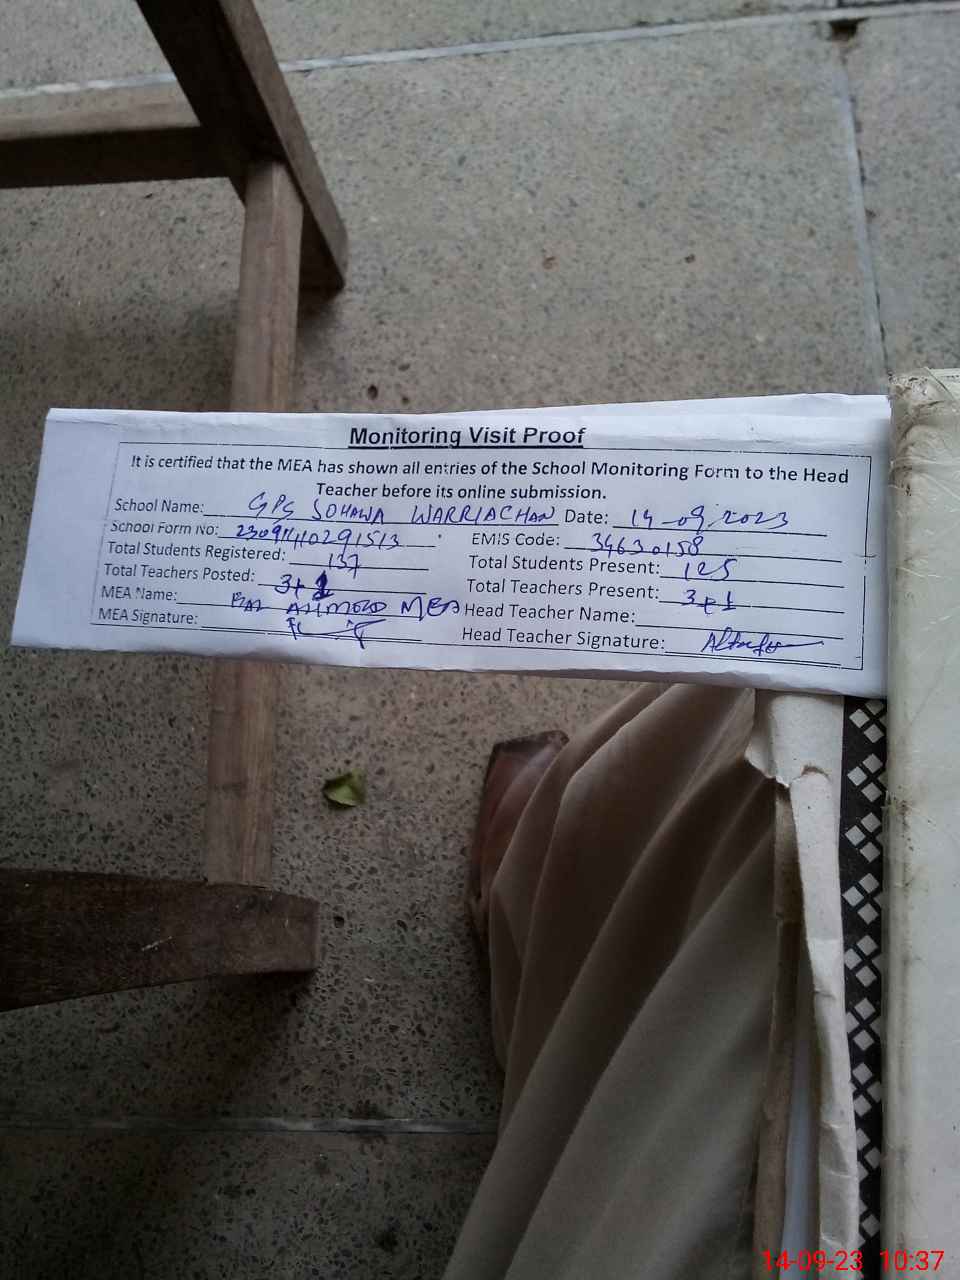 Monitoring Visit Proof
It is certified that the MEA has shown all entries of the School Monitoring Form to the Head
Teacher before its online submission.
School Name: GPS SOHAWA WARRIACHAN Date: 14-09-2023
School Form No: EMIS Code: 34630158
Total Students Registered: 137 Total Students Present: 125
Total Teachers Posted: 3+1 Total Teachers Present: 3+1
MEA Name: AHMED MEA Head Teacher Name:
MEA Signature: Head Teacher Signature:
14-09-23 10:37